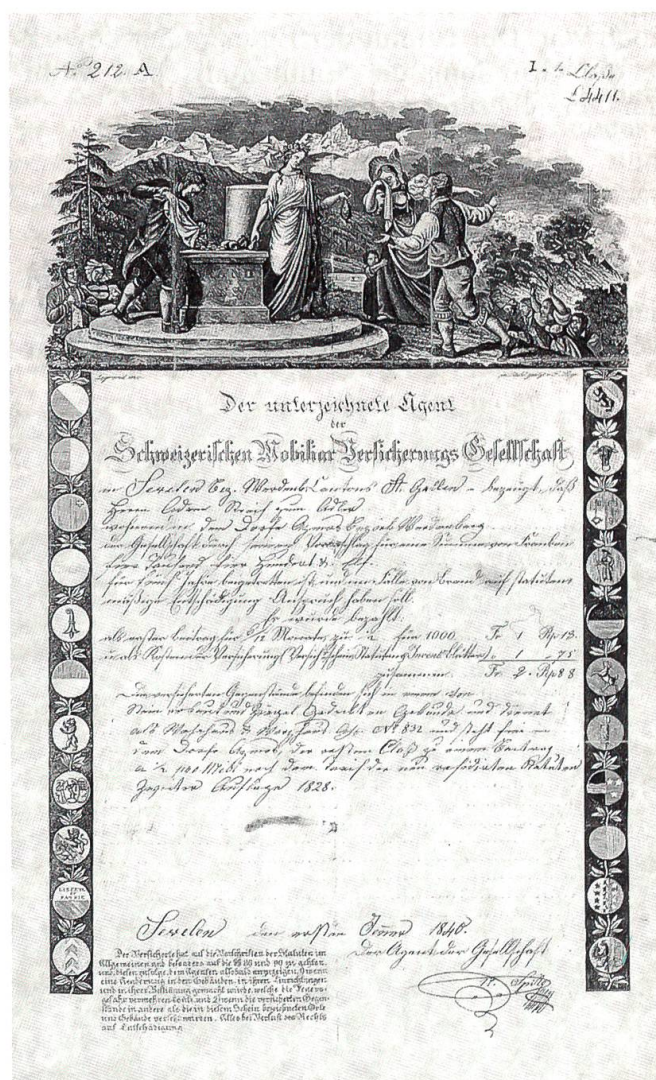 No 212. A
I. te Classe
L 4411.
Der unterzeichnete Agent
der
Schweizerischen Mobiliar Versicherungs Gesellschaft
in Sevelen Bez. Werdenb. Cantons St. Gallen – bezeugt, daß
Herrn zum Adler
wohnend in dem Dorfe Azmos Bezirk Werdenberg
der Gesellschaft durch Vorschlag für eine Summe von Franken
vier Tausend vier Hundert & Elf.
für fünf Jahre beigetreten ist, und im Falle von Brand auf statuten
mäßige Entschädigung Anspruch haben soll.
Er wurde bezahlt:
als erster Beitrag für /12 Monate zu für 1000. Fr. 1 Rp 13
u. als Kosten der Versicherung 1 , 75
zusammen Fr. 2. Rp 88
Die versicherten Gegenstände befinden sich in einem von
Stein erbaut und Ziegel gedeckten Gebäude und dienet
als Wohnhaus & N° 832 und steht frei in
dem Dorfe Azmos, der ersten Classe zu einem Beitrag
a ½ nach dem der neu revidirten Statuten
Zweiter Auflage 1828.
LIBERTÉ
ET
PATRIE
Sevelen den ersten Jenner 1840.
Der Agent der Gesellschaft
Der Versicherte hat auf die Vorschriften der Statuten im
Allgemeinen und besonders auf die §§ 80 und 90 zu achten,
und diesen zufolge, dem Agenten allsobald anzuzeigen, 1) wenn
eine Aenderung in den Gebäuden, in ihren Einrichtungen
und in ihrer Bestimmung gemacht würde, welche die Feuers-
gefahr vermehren sollte, und 2) wenn die versicherten Gegen-
stände in andere als die in diesem Schein bezeichneten Orte
und Gebäude versetzt würden. Alles bei Verlust des Rechts
auf Entschädigung